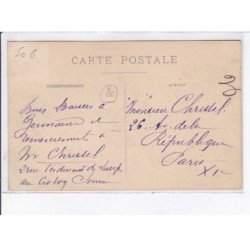 50 €
CARTE POSTALE
CORRESPONDANCE
ADRESSE
80
Bons Baisers à
Germaine et
remerciements à
Mr Christel
2 rue Ferdinand de
au Crotoy Somme
Monsieur Christel
26 Av. de la
République
Paris
XI